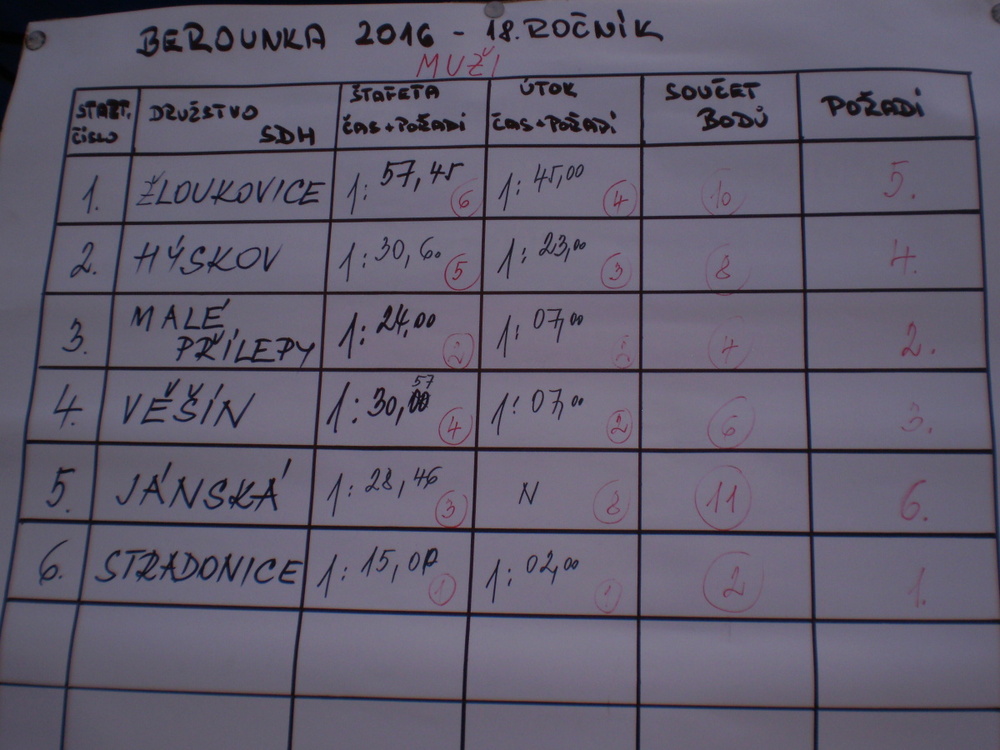 BEROUNKA 2016 - 18. ROČNÍK
MUŽI
START. ČÍSLO DRUŽSTVO SDH ŠTAFETA ČAS + POŘADÍ ÚTOK ČAS + POŘADÍ SOUČET BODŮ POŘADÍ
1. ŽLOUKOVICE 1:57,45 6 1:45,00 4 10 5.
2. HÝSKOV 1:30,60 5 1:23,00 3 8 4.
3. MALÉ PŘÍLEPY 1:24,00 2 1:07,00 2 4 2.
4. VĚŠÍN 1:30,57 4 1:07,00 2 6 3.
5. JÁNSKÁ 1:28,46 3 N 8 11 6.
6. STRADONICE 1:15,00 1 1:02,00 1 2 1.